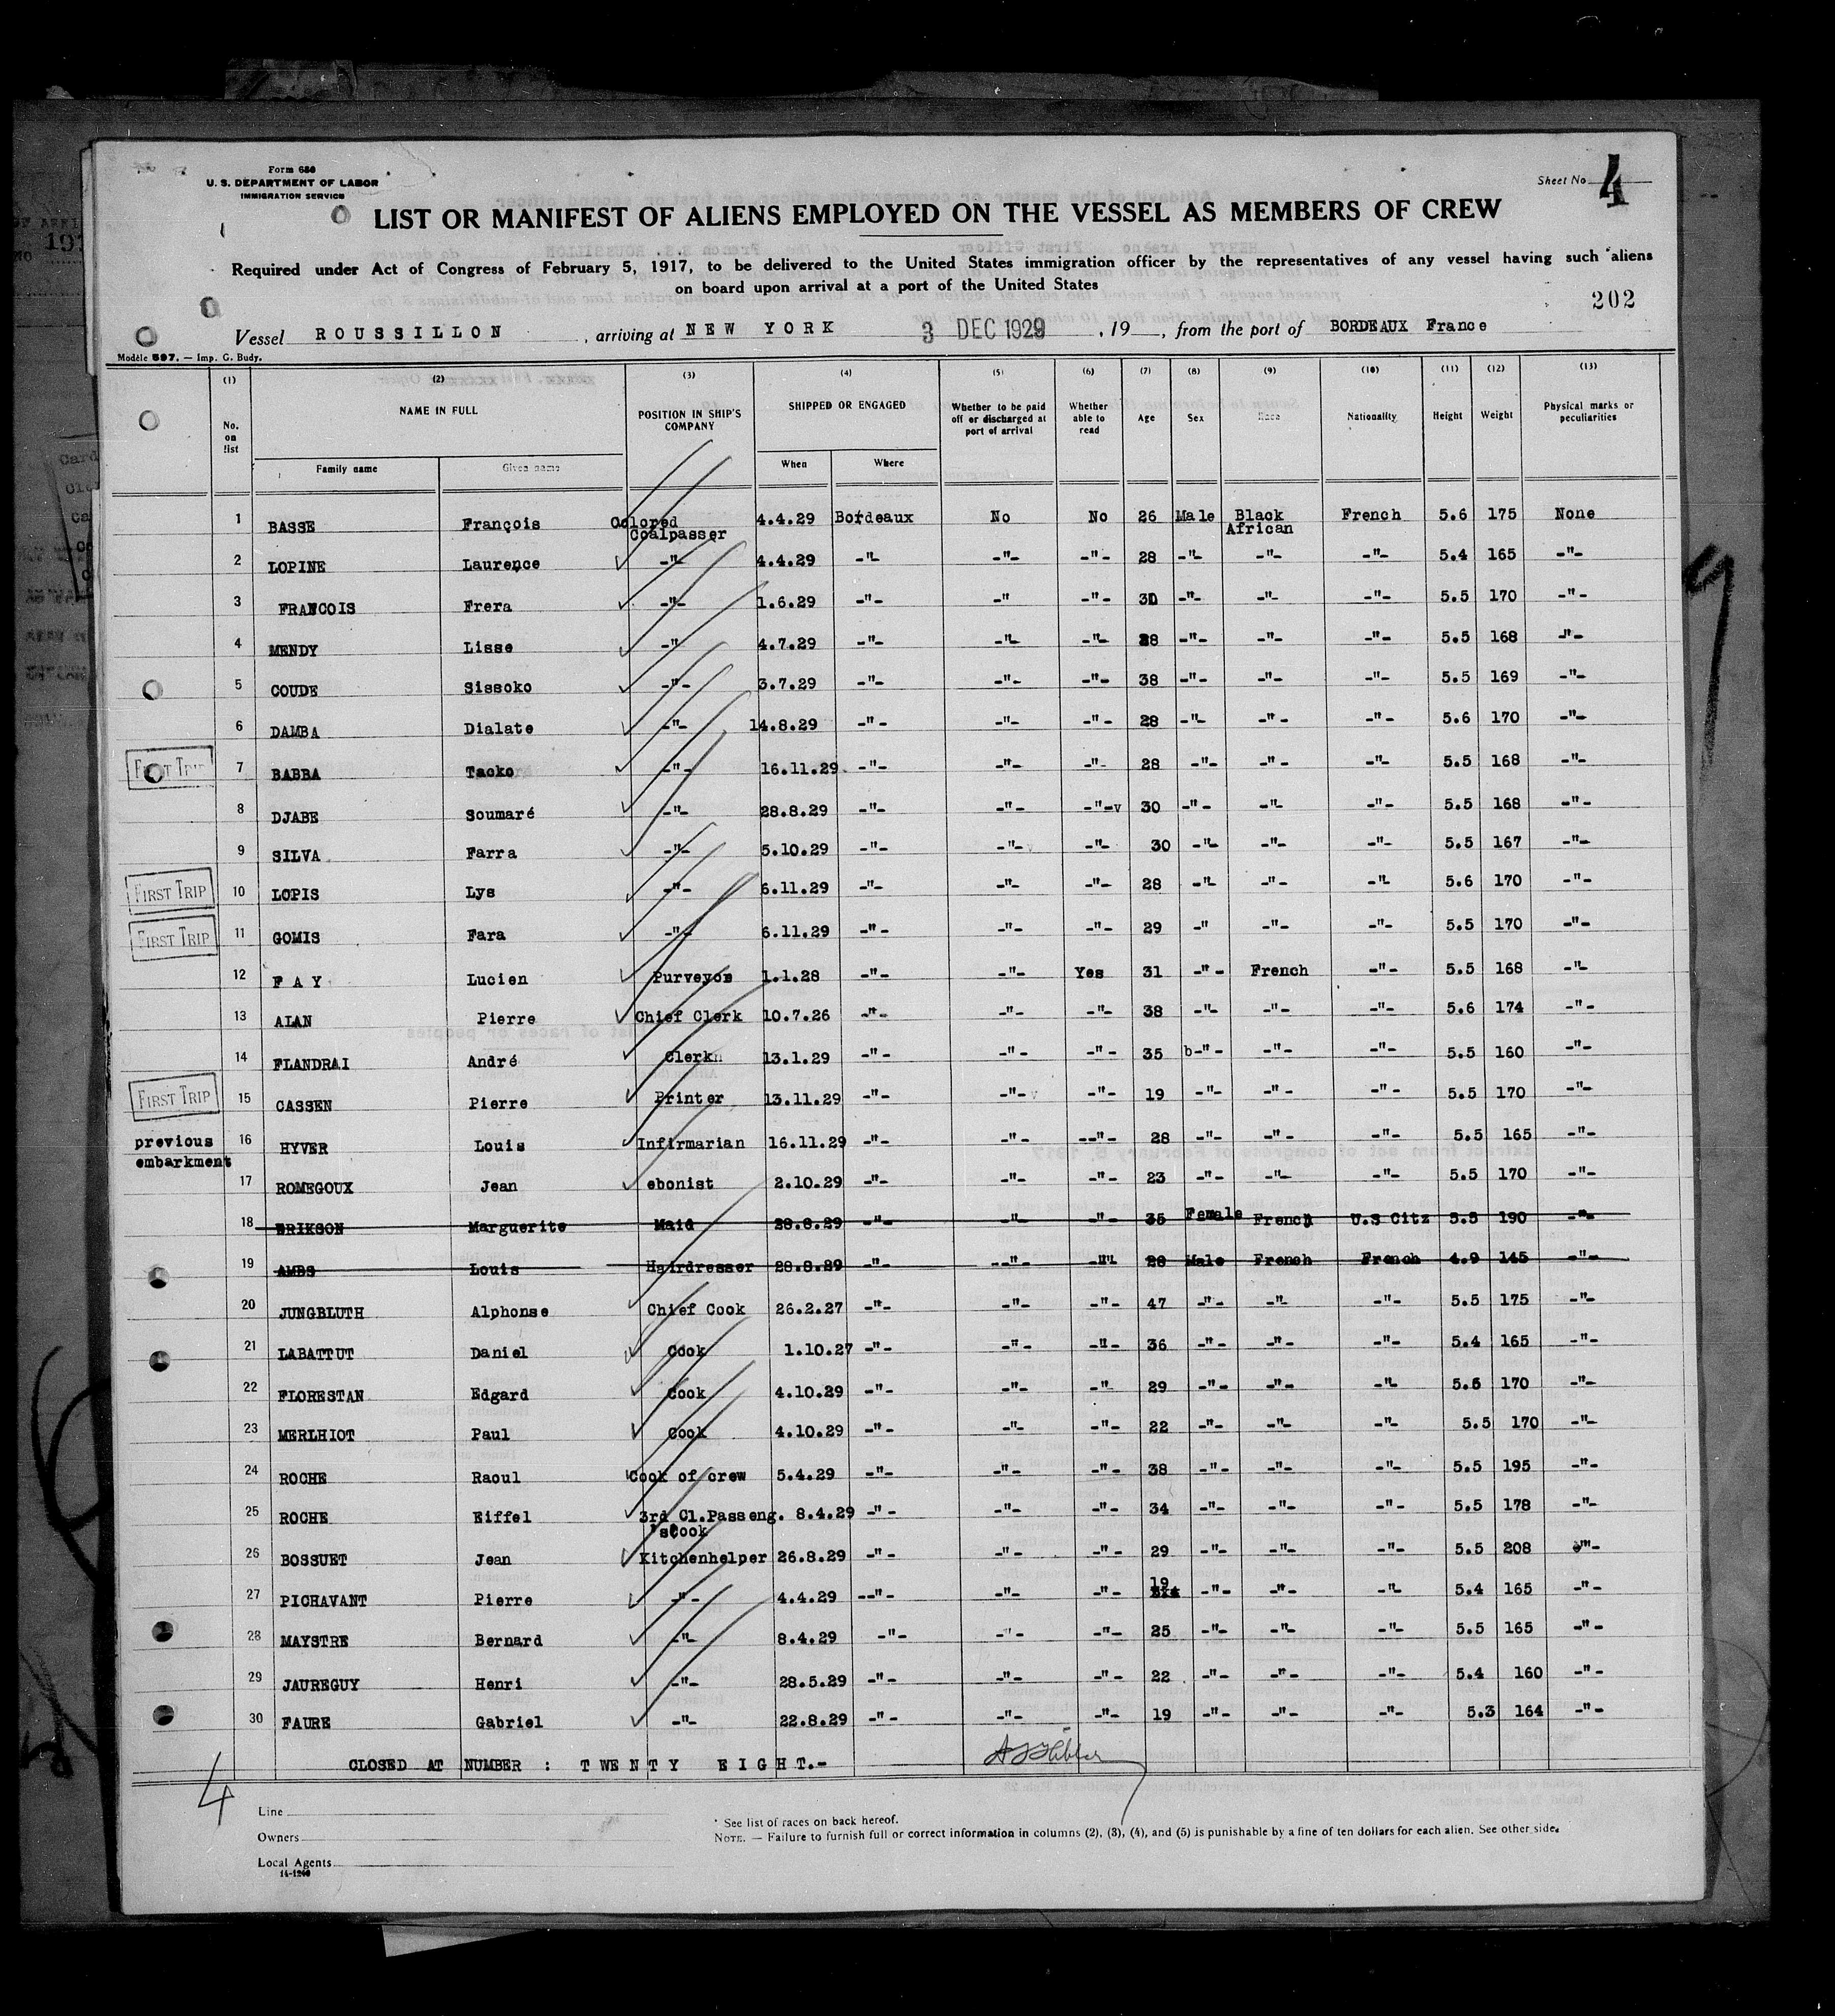 Form 680
U. S. DEPARTMENT OF LABOR
IMMIGRATION SERVICE
Sheet No 4
LIST OR MANIFEST OF ALIENS EMPLOYED ON THE VESSEL AS MEMBERS OF CREW
Required under Act of Congress of February 5, 1917, to be delivered to the United States immigration officer by the representatives of any vessel having such aliens
on board upon arrival at a port of the United States
202
Vessel ROUSSILLON , arriving at NEW YORK 3 DEC 1929 , 19 , from the port of BORDEAUX France
Modèle 597. — Imp. G. Budy.
(1) (2) (3) (4) (5) (6) (7) (8) (9) (10) (11) (12) (13)
No. on list NAME IN FULL POSITION IN SHIP'S COMPANY SHIPPED OR ENGAGED Whether to be paid off or discharged at port of arrival Whether able to read Age Sex Race Nationality Height Weight Physical marks or peculiarities
Family name Given name When Where
1 BASSE François Colored Coalpasser 4.4.29 Bordeaux No No 26 Male Black African French 5.6 175 None
2 LOPINE Laurence -"- 4.4.29 -"- -"- -"- 28 -"- -"- -"- 5.4 165 -"-
3 FRANCOIS Frera -"- 1.6.29 -"- -" -"- 30 -"- -"- -"- 5.5 170 -"-
4 MENDY Lisse -"- 4.7.29 -"- -"- -"- 28 -"- -"- -"- 5.5 168 -"-
5 COUDE Sissoko -"- 3.7.29 -"- -"- -"- 38 -"- -"- -"- 5.5 169 -"-
6 DAMBA Dialate -"- 14.8.29 -"- -"- -"- 28 -"- -"- -"- 5.6 170 -"-
FIRST TRIP 7 BABBA Tacko -"- 16.11.29 -"- -"- -"- 28 -"- -"- -"- 5.5 168 -"-
8 DJABE Soumaré -"- 28.8.29 -"- -"- -"-v 30 -"- -"- -"- 5.5 168 -"-
9 SILVA Farra -"- 5.10.29 -"- -"- -"- 30 -"- -"- -"- 5.5 167 -"-
FIRST TRIP 10 LOPIS Lys -"- 6.11.29 -"- -"- -"- 28 -"- -"- -"- 5.6 170 -"-
FIRST TRIP 11 GOMIS Fara -"- 6.11.29 -"- -"- -"- 29 -" -"- -"- 5.5 170 -"-
12 F A Y Lucien Purveyor 1.1.28 -"- -"- Yes 31 -"- French -"- 5.5 168 -"-
13 ALAN Pierre Chief Clerk 10.7.26 -"- -"- -"- 38 -"- -"- -"- 5.6 174 -"-
14 FLANDRAI André Clerk 13.1.29 -"- -"- -"- 35 b-"- -"- -"- 5.5 160 -"-
FIRST TRIP 15 CASSEN Pierre Printer 13.11.29 -"- -"- -"- 19 -"- -"- -"- 5.5 170 -"-
previous embarkment 16 HYVER Louis Infirmarian 16.11.29 -"- -"- --"- 28 -"- -"- -"- 5.5 165 -"-
17 ROMEGOUX Jean ebonist 2.10.29 -"- -"- -"- 23 -"- -"- -"- 5.5 170 -"-
18 ERIKSON Marguerite Maid 28.8.29 -"- -"- -"- 35 Female French U.S Citz 5.5 190 -"-
19 AMBS Louis Hairdresser 28.8.29 -"- --"- -"- 28 Male French French 4.9 145 -"-
20 JUNGBLUTH Alphonse Chief Cook 26.2.27 -"- -"- -"- 47 -"- -"- -"- 5.5 175 -"-
21 LABATTUT Daniel Cook 1.10.27 -"- -"- -"- 36 -"- -"- -"- 5.4 165 -"-
22 FLORESTAN Edgard Cook 4.10.29 -"- -"- -"- 29 -"- -"- -"- 5.5 170 -"-
23 MERLHIOT Paul Cook 4.10.29 -"- -"- -"- 22 -"- -"- -"- 5.5 170 -"-
24 ROCHE Raoul Cook of crew 5.4.29 -"- -"- -"- 38 -"- -"- -"- 5.5 195 -"-
25 ROCHE Eiffel 3rd Cl.Passeng. 'sCook 8.4.29 -"- -"- -"- 34 -"- -"- -"- 5.5 178 -"-
26 BOSSUET Jean Kitchenhelper 26.8.29 -"- -"- -"- 29 -"- -"- -"- 5.5 208 -"-
27 PICHAVANT Pierre -"- 4.4.29 --"- -"- -"- 19 -"- -"- -"- 5.4 165 -"-
28 MAYSTRE Bernard -"- 8.4.29 -"- -"- -"- 25 -"- -"- -"- 5.5 165 -"-
29 JAUREGUY Henri -"- 28.5.29 -"- -"- -"- 22 -"- -"- -"- 5.4 160 -"-
30 FAURE Gabriel -"- 22.8.29 -"- -"- -"- 19 -"- -"- -"- 5.3 164 -"-
CLOSED AT NUMBER : TWENTY EIGHT.-
4
Line
Owners
Local Agents
14-1240
* See list of races on back hereof.
NOTE. — Failure to furnish full or correct information in columns (2), (3), (4), and (5) is punishable by a fine of ten dollars for each alien. See other side.